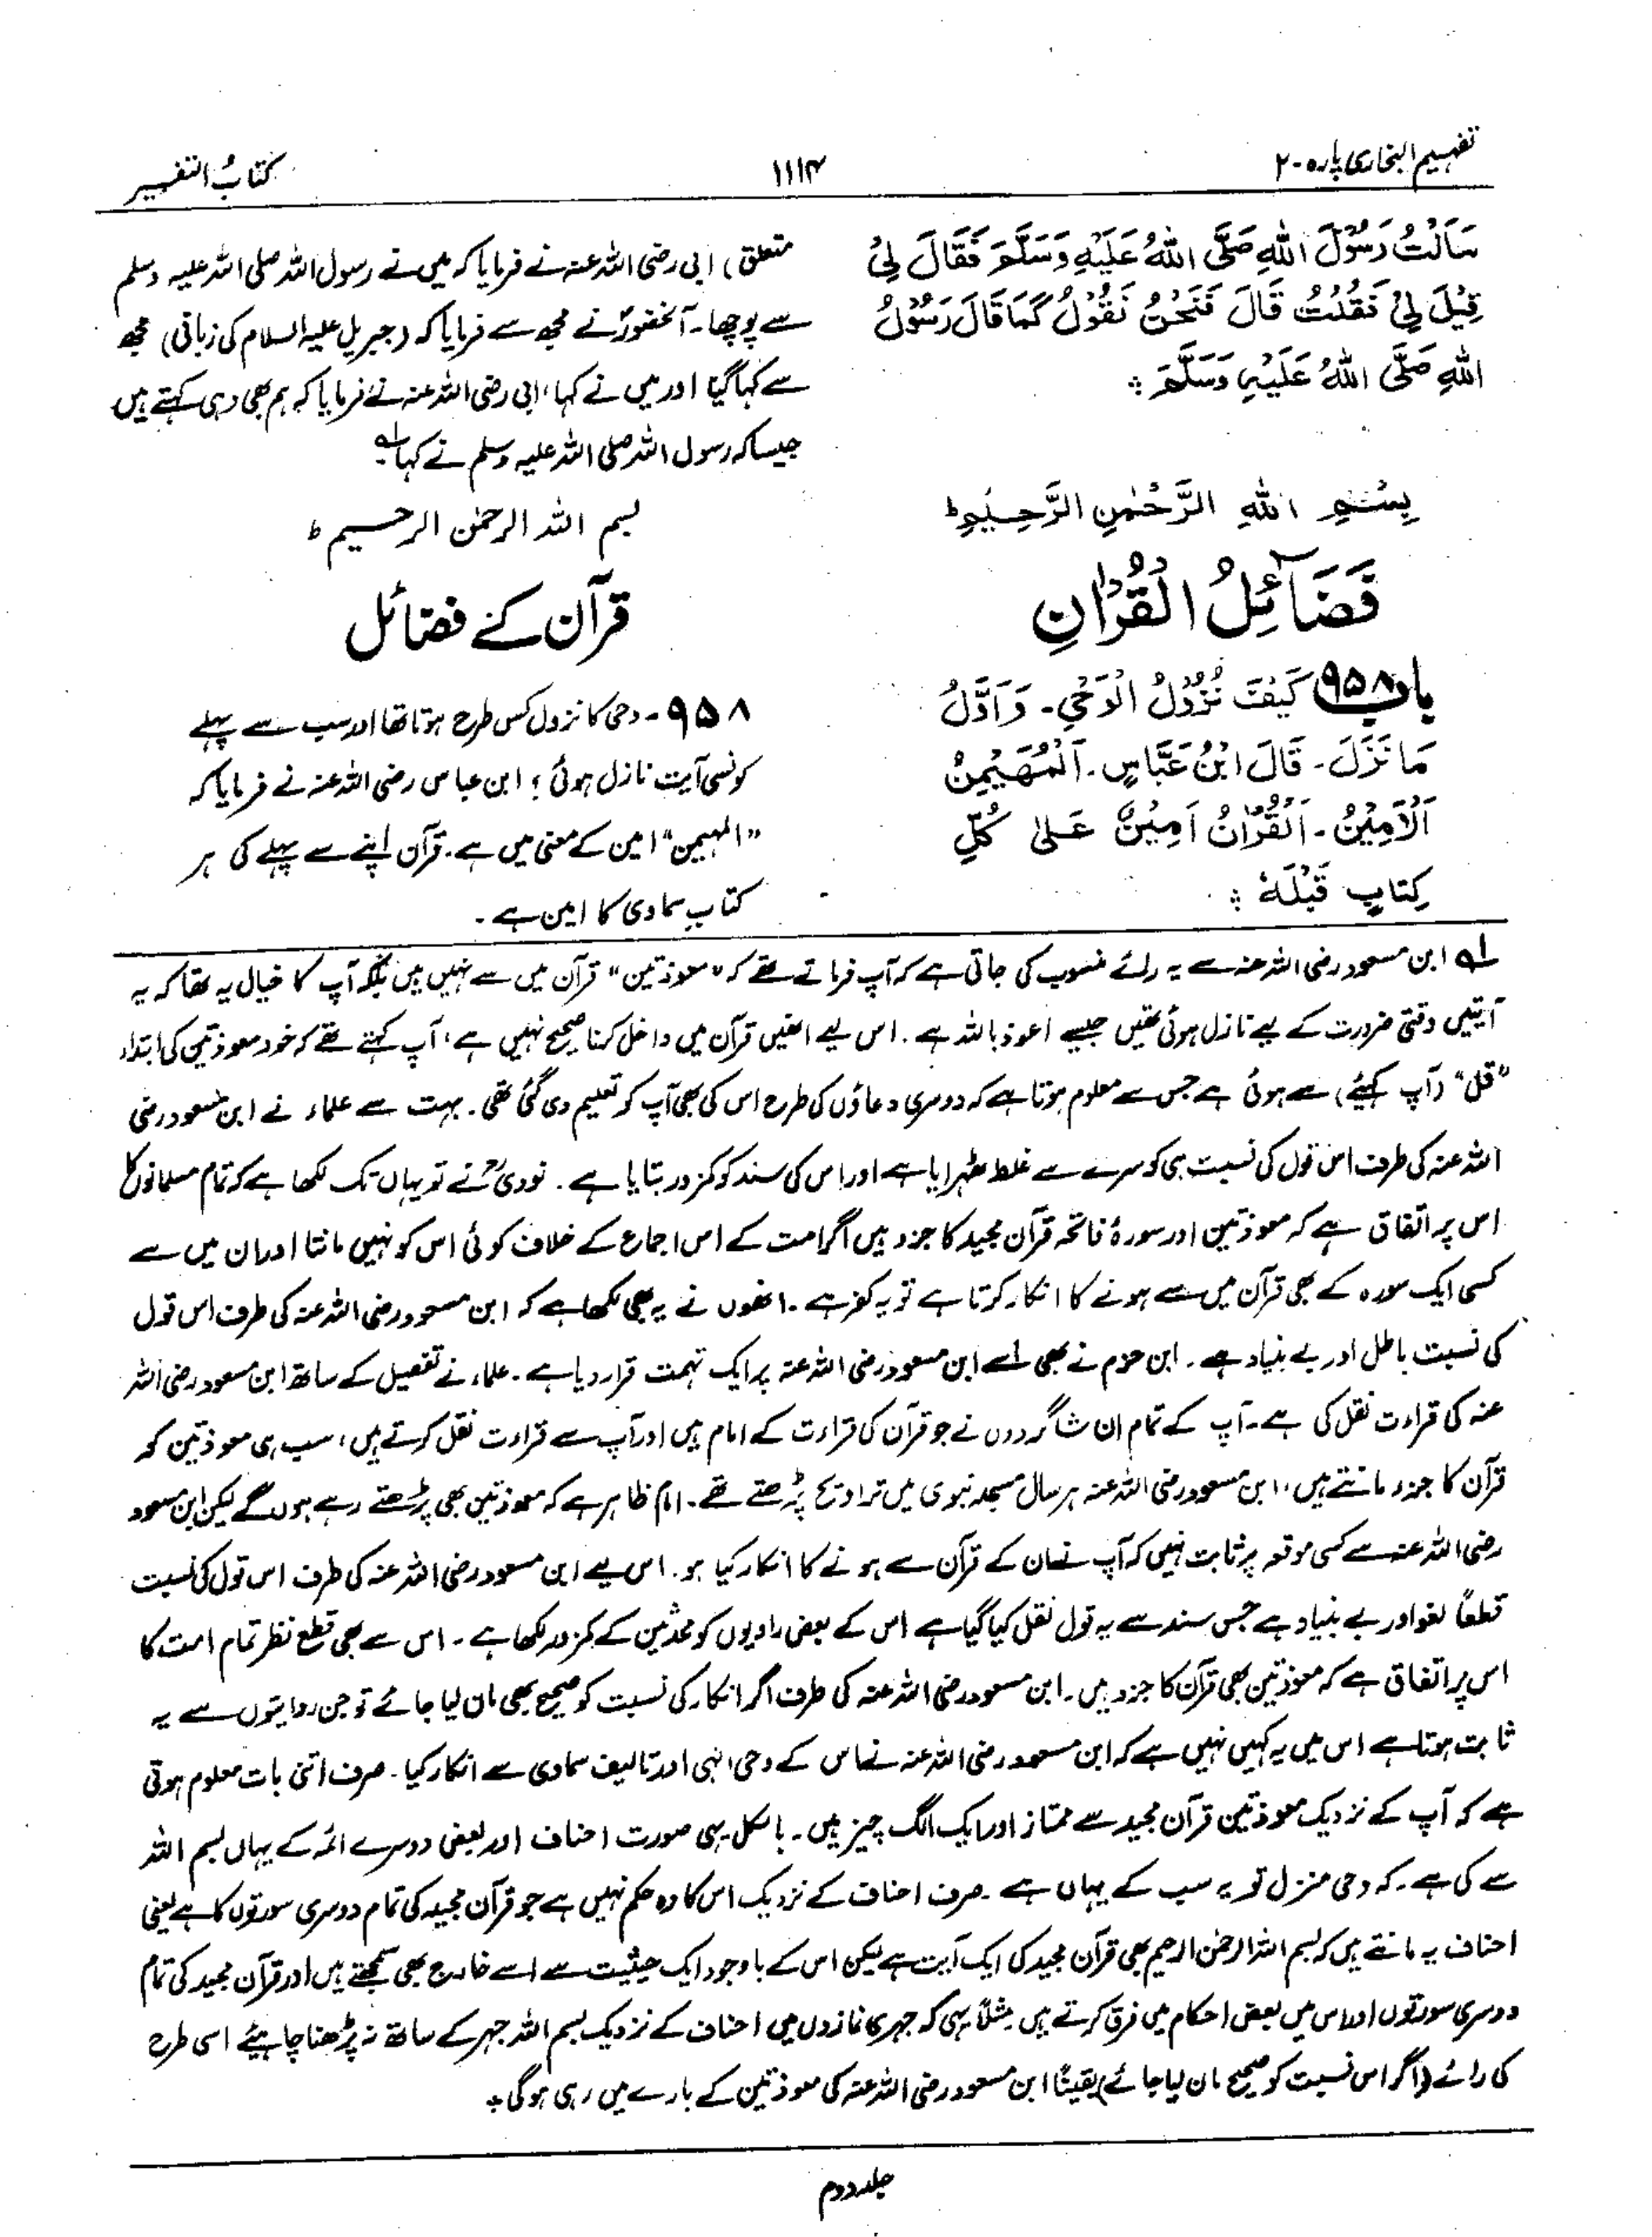 تفہیم البخاری پارہ ۲۰
۱۱۱۴
کتابُ التفسیر
سَاَلْتُ رَسُوْلَ اللّٰهِ صَلَّى اللّٰهُ عَلَيْهِ وَسَلَّمَ فَقَالَ لِيْ
قِيْلَ لِيْ فَقُلْتُ قَالَ فَنَحْنُ نَقُوْلُ كَمَا قَالَ رَسُوْلُ
اللّٰهِ صَلَّى اللّٰهُ عَلَيْهِ وَسَلَّمَ ؞
بِسْمِ اللّٰهِ الرَّحْمٰنِ الرَّحِيْمِ ط
فَضَآئِلُ الْقُرْاٰنِ
باب ۹۵۸ كَيْفَ نُزُوْلُ الْوَحْيِ۔ وَاَوَّلُ
مَا نَزَلَ۔ قَالَ ابْنُ عَبَّاسٍ۔ اَلْمُهَيْمِنُ
اَلْاَمِيْنُ۔ اَلْقُرْاٰنُ اَمِيْنٌ عَلٰى كُلِّ
كِتَابٍ قَبْلَهٗ ؞
متعلق) ابی رضی اللہ عنہ نے فرمایا کہ میں نے رسول اللہ صلی اللہ علیہ وسلم
سے پوچھا۔ آنحضورؐ نے مجھ سے فرمایا کہ (جبریل علیہ السلام کی زبانی) مجھ
سے کہا گیا اور میں نے کہا، ابی رضی اللہ عنہ نے فرمایا کہ ہم بھی وہی کہتے ہیں
جیسا کہ رسول اللہ صلی اللہ علیہ وسلم نے کہا۔ لہ
بسم اللہ الرحمٰن الرحیم ط
قرآن کے فضائل
۹۵۸۔ وحی کا نزول کس طرح ہوتا تھا اور سب سے پہلے
کونسی آیت نازل ہوئی؟ ابن عباس رضی اللہ عنہ نے فرمایا کہ
"المہیمن" امین کے معنی میں ہے۔ قرآن اپنے سے پہلے کی ہر
کتاب سماوی کا امین ہے۔
لہ ابن مسعود رضی اللہ عنہ سے یہ رائے منسوب کی جاتی ہے کہ آپ فرماتے تھے کہ "معوذتین" قرآن میں سے نہیں ہیں بلکہ آپ کا خیال یہ تھا کہ یہ
آیتیں وقتی ضرورت کے لیے نازل ہوئی تھیں جیسے اعوذ باللہ ہے۔ اس لیے انھیں قرآن میں داخل کرنا صحیح نہیں ہے، آپ کہتے تھے کہ خود معوذتین کی ابتداء
"قل" (آپ کہیئے) سے ہوئی ہے جس سے معلوم ہوتا ہے کہ دوسری دعاؤں کی طرح اس کی بھی آپ کو تعلیم دی گئی تھی۔ بہت سے علماء نے ابن مسعود رضی
اللہ عنہ کی طرف اس قول کی نسبت ہی کو سرے سے غلط ٹھہرایا ہے اور اس کی سند کو کمزور بتایا ہے۔ نوویؒ نے تو یہاں تک لکھا ہے کہ تمام مسلمانوں کا
اس پر اتفاق ہے کہ معوذتین اور سورۂ فاتحہ قرآن مجید کا جزو ہیں اگر امت کے اس اجماع کے خلاف کوئی اس کو نہیں مانتا اور ان میں سے
کسی ایک سورہ کے بھی قرآن میں سے ہونے کا انکار کرتا ہے تو یہ کفر ہے۔ انھوں نے یہ بھی لکھا ہے کہ ابن مسعود رضی اللہ عنہ کی طرف اس قول
کی نسبت باطل اور بے بنیاد ہے۔ ابن حزم نے بھی اسے ابن مسعود رضی اللہ عنہ پر ایک تہمت قرار دیا ہے۔ علماء نے تفصیل کے ساتھ ابن مسعود رضی اللہ
عنہ کی قراءت نقل کی ہے۔ آپ کے تمام ان شاگردوں نے جو قرآن کی قراءت کے امام ہیں اور آپ سے قراءت نقل کرتے ہیں، سب ہی معوذتین کو
قرآن کا جزء مانتے ہیں، ابن مسعود رضی اللہ عنہ ہر سال مسجد نبوی میں تراویح پڑھتے تھے۔ امام ظاہر ہے کہ معوذتین بھی پڑھتے رہے ہوں گے لیکن ابن مسعود
رضی اللہ عنہ سے کسی موقعہ پر ثابت نہیں کہ آپ نے ان کے قرآن سے ہونے کا انکار کیا ہو۔ اس لیے ابن مسعود رضی اللہ عنہ کی طرف اس قول کی نسبت
قطعاً لغو اور بے بنیاد ہے جس سند سے یہ قول نقل کیا گیا ہے اس کے بعض راویوں کو محدثین کے کمزور لکھا ہے۔ اس سے بھی قطع نظر تمام امت کا
اس پر اتفاق ہے کہ معوذتین بھی قرآن کا جزو ہیں۔ ابن مسعود رضی اللہ عنہ کی طرف اگر انکار کی نسبت کو صحیح بھی مان لیا جائے تو جن روایتوں سے یہ
ثابت ہوتا ہے اس میں یہ کہیں نہیں ہے کہ ابن مسعود رضی اللہ عنہ نے اس کے وحی الٰہی اور تالیف سماوی سے انکار کیا۔ صرف اتنی بات معلوم ہوتی
ہے کہ آپ کے نزدیک معوذتین قرآن مجید سے ممتاز اور ایک الگ چیز ہیں۔ بالکل یہی صورت احناف اور بعض دوسرے ائمہ کے یہاں بسم اللہ
سے کی ہے۔ کہ وحی منزل تو یہ سب کے یہاں ہے۔ صرف احناف کے نزدیک اس کا وہ حکم نہیں ہے جو قرآن مجید کی تمام دوسری سورتوں کا ہے یعنی
احناف یہ مانتے ہیں کہ بسم اللہ الرحمٰن الرحیم بھی قرآن مجید کی ایک آیت ہے لیکن اس کے باوجود ایک حیثیت سے اسے خارج بھی سمجھتے ہیں اور قرآن مجید کی تمام
دوسری سورتوں اور اس میں بعض احکام میں فرق کرتے ہیں مثلاً یہی کہ جہری نمازوں میں احناف کے نزدیک بسم اللہ جہر کے ساتھ نہ پڑھنا چاہیئے اسی طرح
کی رائے (اگر اس نسبت کو صحیح مان لیا جائے) یقیناً ابن مسعود رضی اللہ عنہ کی معوذتین کے بارے میں رہی ہوگی ؞
جلد دوم